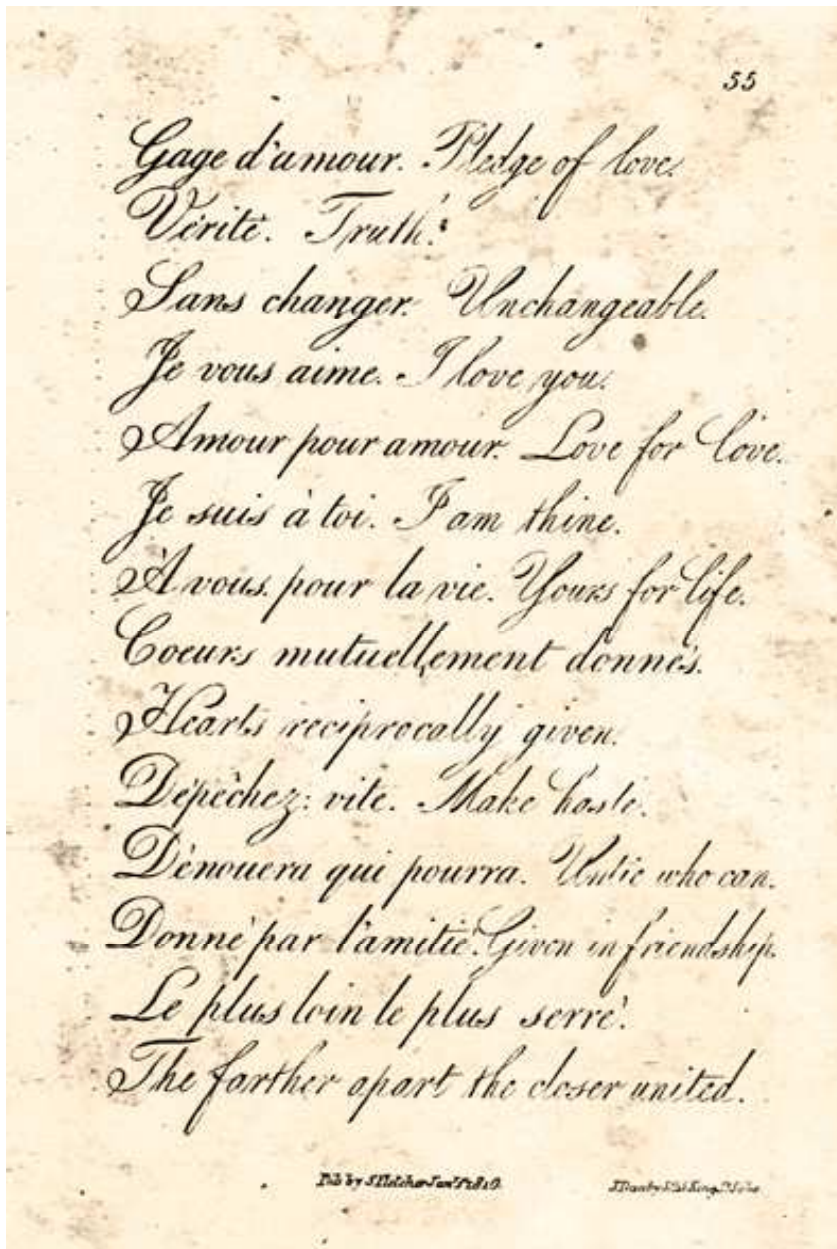 55
Gage d'amour. Pledge of love.
Vérité. Truth.
Sans changer. Unchangeable.
Je vous aime. I love you.
Amour pour amour. Love for love.
Je suis à toi. I am thine.
À vous pour la vie. Yours for life.
Coeurs mutuellement donnés.
Hearts reciprocally given.
Dépêchez: vite. Make haste.
Dénouera qui pourra. Untie who can.
Donné par l'amitié. Given in friendship.
Le plus loin le plus serré.
The farther apart the closer united.
Pub by